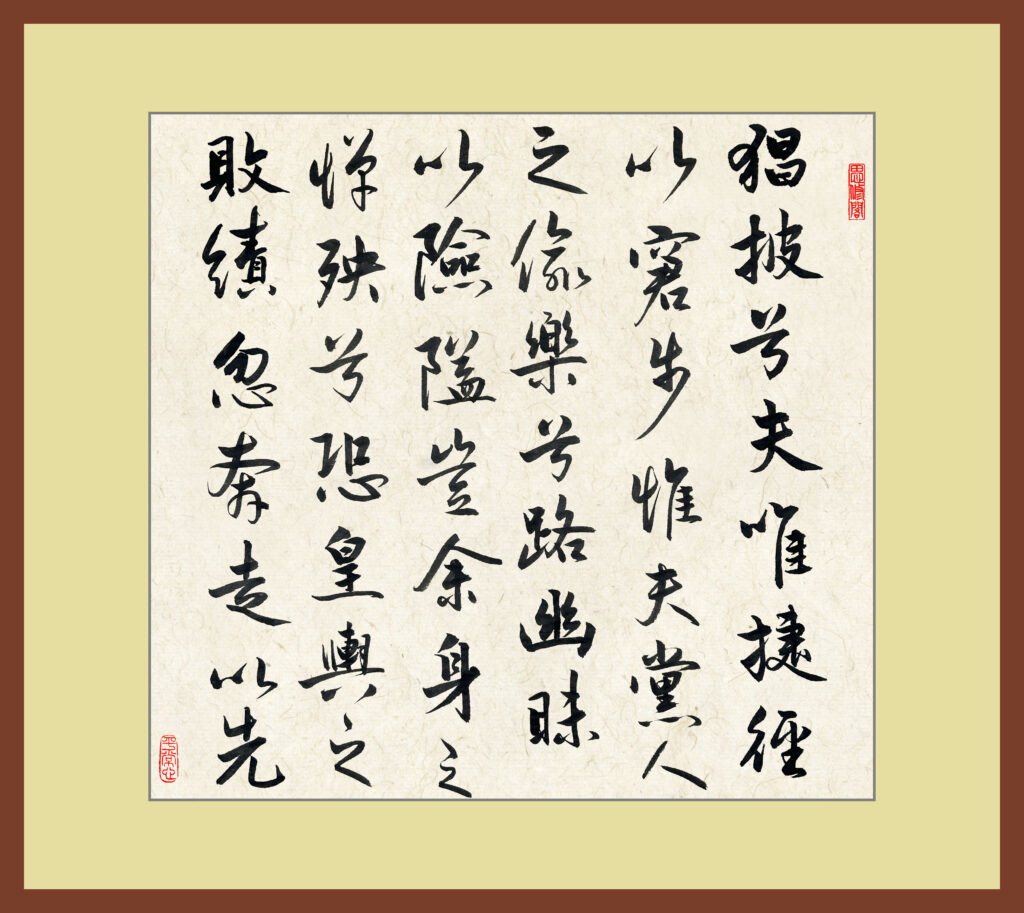 猖披兮夫唯捷徑
以窘步惟夫黨人
之偷樂兮路幽昧
以險隘豈余身之
憚殃兮恐皇輿之
敗績忽奔走以先